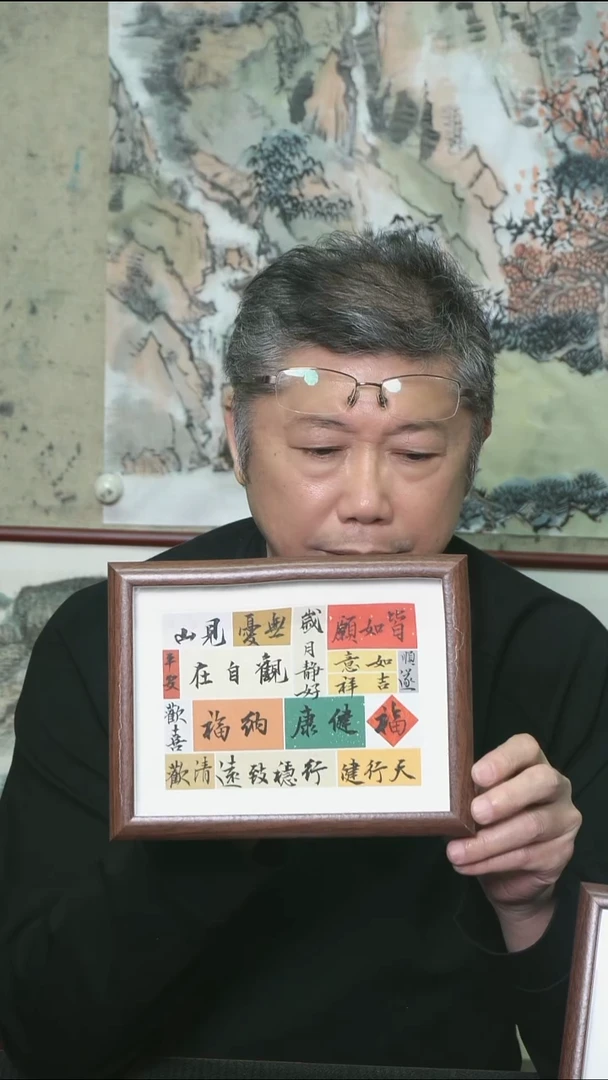 皆如願
歲月静好
無憂
見山
順遂
如意
吉祥
觀自在
平安
福
健康
納福
歡喜
天行健
行穩致遠
清歡